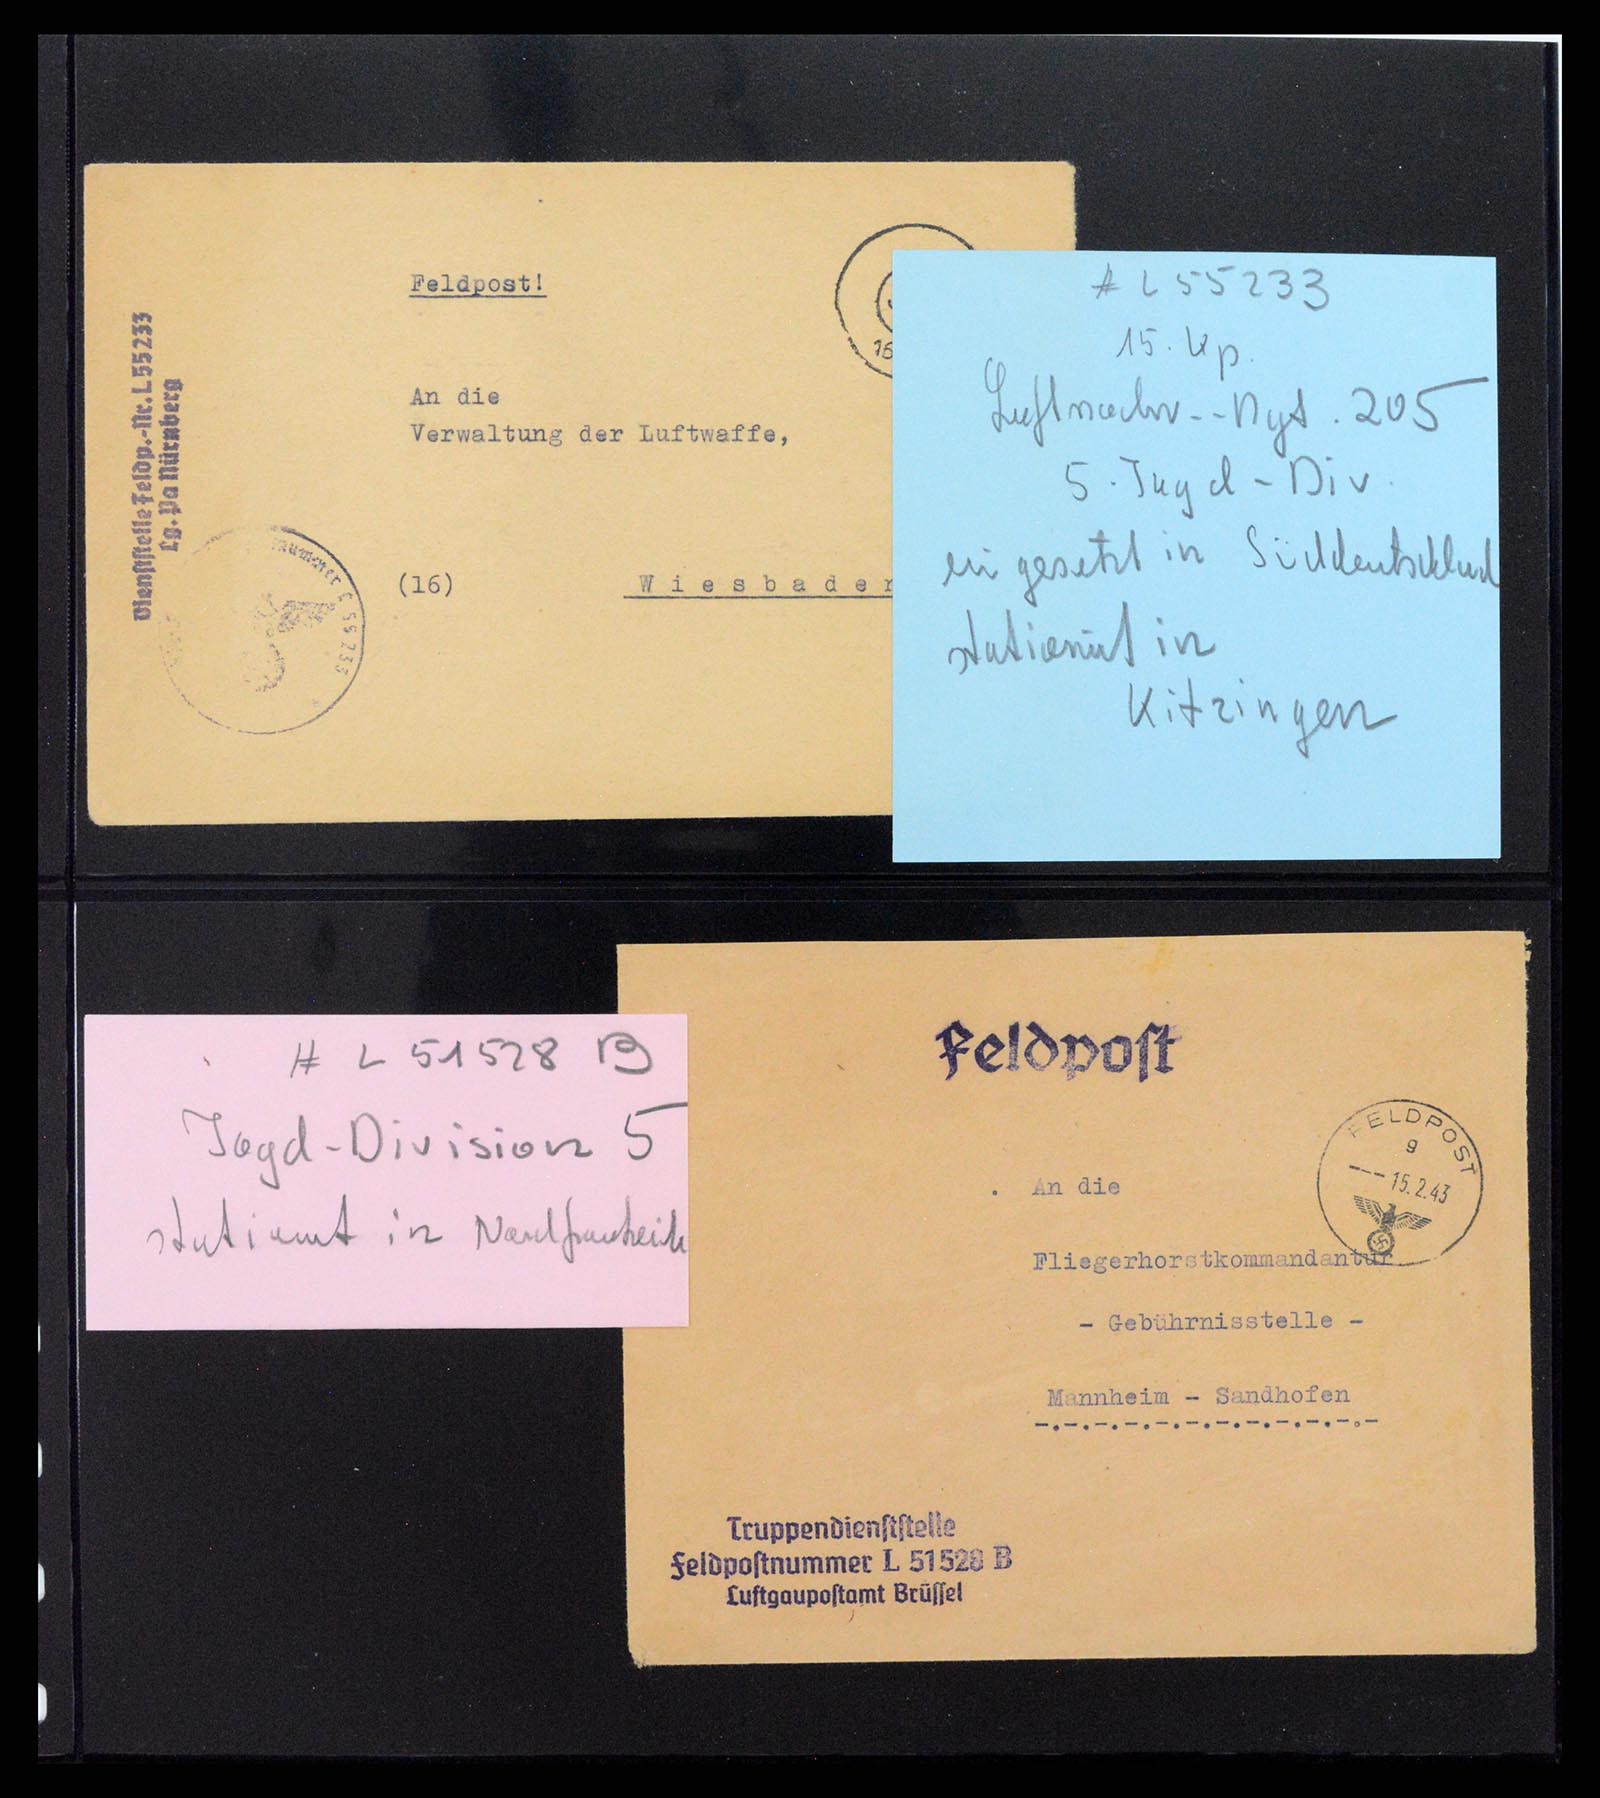 Feldpost!
An die
Verwaltung der Luftwaffe,
(16) Wiesbaden
Dienststelle Feldp.-Nr. L 55233
Lg. Pa Nürnberg
nummer L 55233
16
# L 55233
15. Kp.
Luftnachr.-Rgt. 205
5. Jagd-Div.
eingesetzt in Süddeutschland
stationiert in
Kitzingen
# L 51528 B
Jagd-Division 5
stationiert in Nordfrankreich
Feldpost
FELDPOST
g
---15.2.43
An die
Fliegerhorstkommandantur
- Gebührnisstelle -
Mannheim - Sandhofen
Truppendienststelle
Feldpostnummer L 51528 B
Luftgaupostamt Brüssel